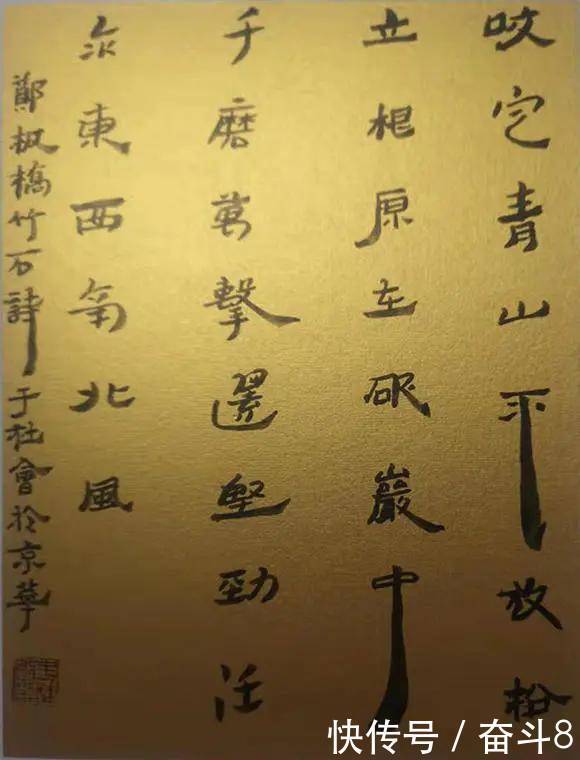 咬定青山不放松
立根原在破巖中
千磨萬擊還堅勁任
尒東西南北風
鄭板橋竹石詩于杜會於京華
快传号 / 奋斗8